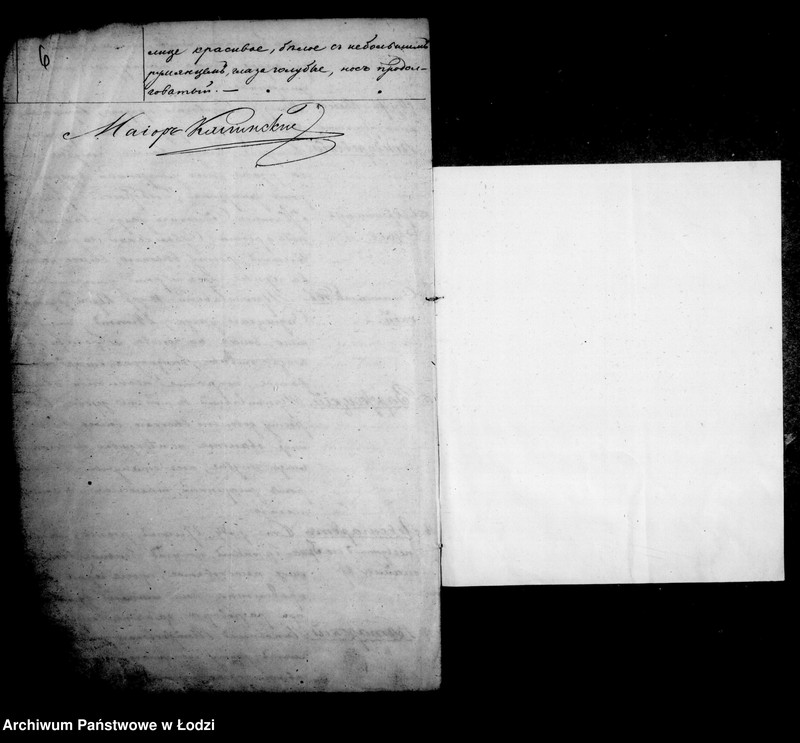 6
лице красивое, бѣлое съ небольшимъ
румянцемъ, глаза голубые, носъ продол-
говатый. —
Маіоръ
Archiwum Państwowe w Łodzi